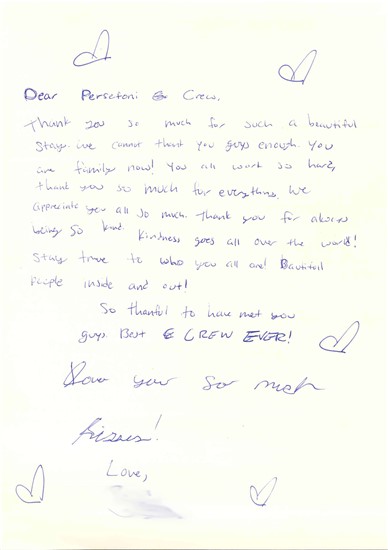 Dear Persefoni & Crew,
Thank you so much for such a beautiful
Stay. We cannot thank you guys enough. You
are family now! You all work so hard,
thank you so much for everything. We
appreciate you all so much. Thank you for always
being so kind. Kindness goes all over the world!
Stay true to who you all are! Bautiful
People inside and out!
So thankful to have met you
guys. Best & CREW EVER!
Love you so much
Kisses!
Love,